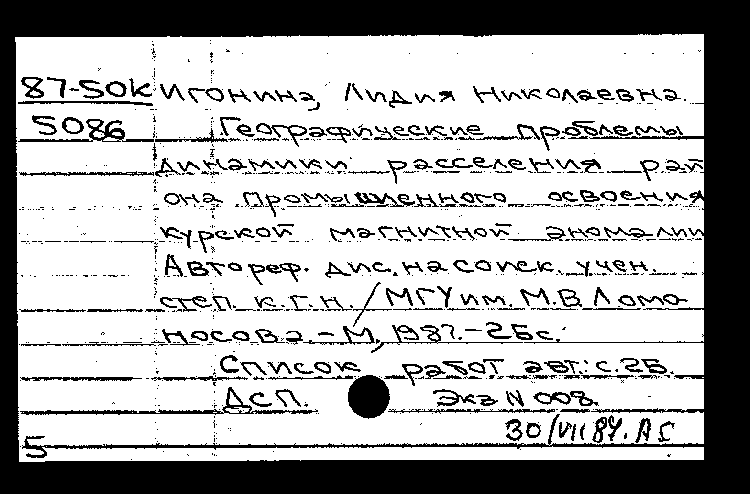 87-50к Игонина, Лидия Николаевна
5086 Географические проблемы
динамики расселения рай
она промышленного освоения
курской магнитной аномалии
Автореф. дис. на соиск. учен.
степ. к.г.н. / МГУ им. М.В Ломо
носова. - М, 1987. - 25 с.
Список работ авт.: с. 25.
ДСП. Экз N 008.
30/VII 87. АС
5